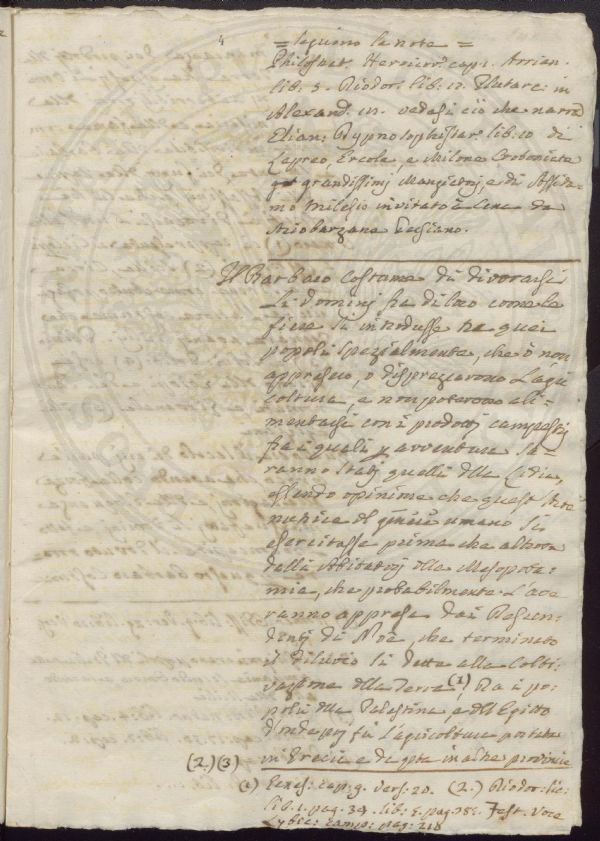 4
= seguono le note =
Philostrat. Heroicor. cap. 1. Arrian.
lib. 3. Diodor. lib. 17. Plutarc: in
Alexand. vedasi ciò che narra
Elian: Dypnosophistar: lib. 10 di
Lapreo, Ercole, e Milone Crotoniata
grandissimj Mangiatorj, e di Astida=
mo Milesio invitato à Cena da
Ariobarzane Persiano.
Il Barbaro Costume di divorarsi
li Dominj fra di loro come le
fiere si introdusse fra quei
popoli spezialmente, che ò non
appresero, o disprezzarono l'agri
coltura, e non potevano ali=
mentarsi con i prodottj campestrj
fra i quali per avventura sa=
ranno statj quelli della Lidia,
essendo opinione che quest'Arte
nutrice del genere umano si
esercitasse prima che altrove
dalli Abitatorj della Mesopota=
mia, che probabilmente l'ave
ranno appresa dai Descen=
dentj di Noè, che terminato
il diluvio si dette alla Colti=
vazione della Terra (1), Da i po=
poli della Palestina, e dell'Egitto
d'onde poj fu l'agricoltura portata
in Grecia e da qsta in altre provincie
(2.) (3)
(1) Genes: cap. 9. vers. 20. (2.) Diodor: sic:
lib. 1. pag. 34. lib. 5. pag. Fest. Voce
Lybic: camp: pag: 218